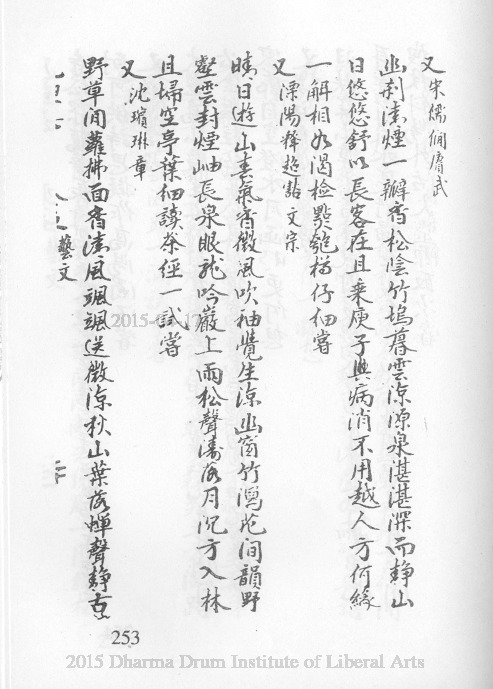 又 宋儒 膺武
幽刹清煙一瓣香松陰竹塢暮雲涼源泉湛湛深而靜山
日悠悠舒以長客在且乘庾子興病消不用越人方何緣
一解相如渴檢點匏樽仔細嘗
又 溧陽釋超詣文宗
晴日遊山喜氣香微風吹袖覺生涼幽窗竹瀉花間韻野
壑雲封煙岫長泉眼龍吟巖上雨松聲濤落月沉方入林
且掃空亭葉細讀茶經一試嘗
又 沈瓚琳章
野草閒蘿拂面香清風颯颯送微涼秋山葉落蟬聲靜古
藝文
253
2015-03-17
2015 Dharma Drum Institute of Liberal Arts